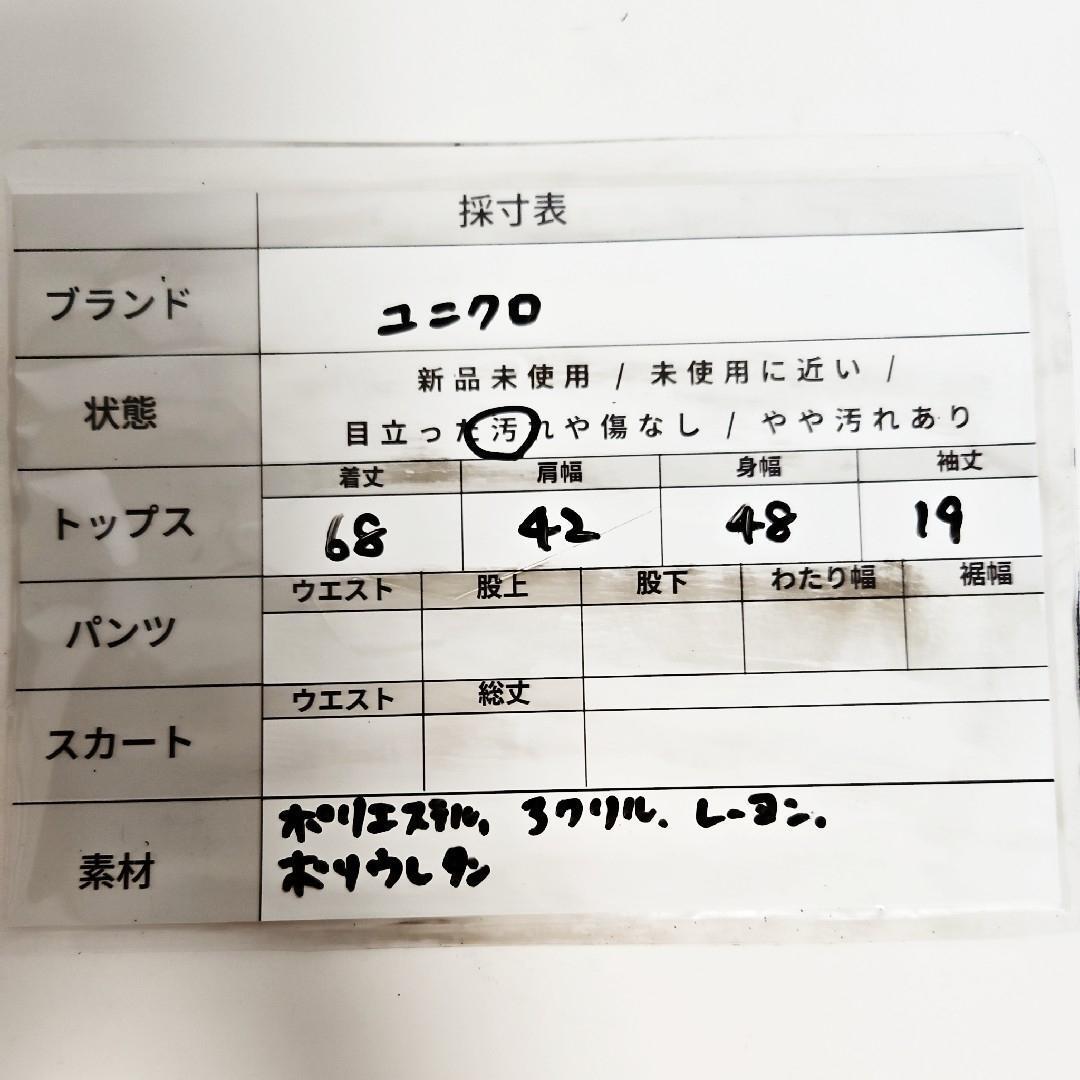 採寸表
ブランド ユニクロ
新品未使用 / 未使用に近い /
状態
目立った汚れや傷なし / やや汚れあり
着丈 肩幅 身幅 袖丈
トップス 68 42 48 19
ウエスト 股上 股下 わたり幅 裾幅
パンツ
ウエスト 総丈
スカート
ポリエステル、アクリル、レーヨン、
素材
ポリウレタン